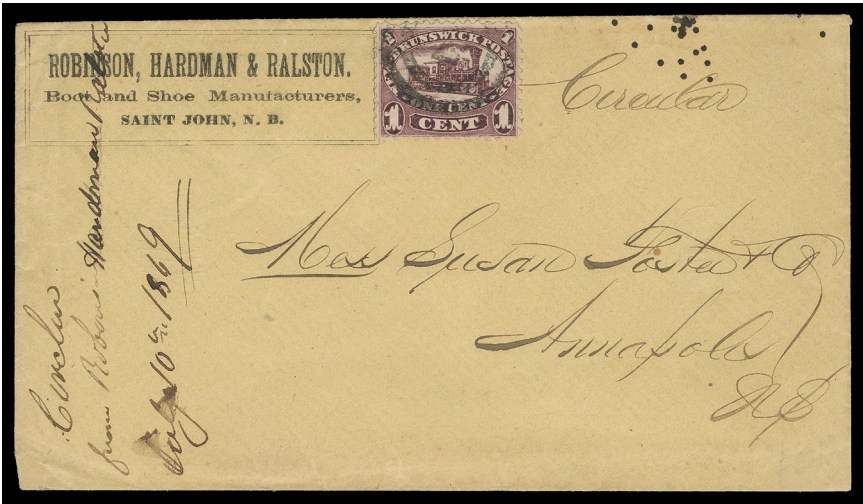 ROBINSON, HARDMAN & RALSTON.
Boot and Shoe Manufacturers,
SAINT JOHN, N. B.
1 1
BRUNSWICK POSTAGE
ONE CENT
1 CENT 1
Circular
Mess Susan Foster & Co
Annapolis
NS
Circular
from Robinson Hardman Ralston
July 10th 1869